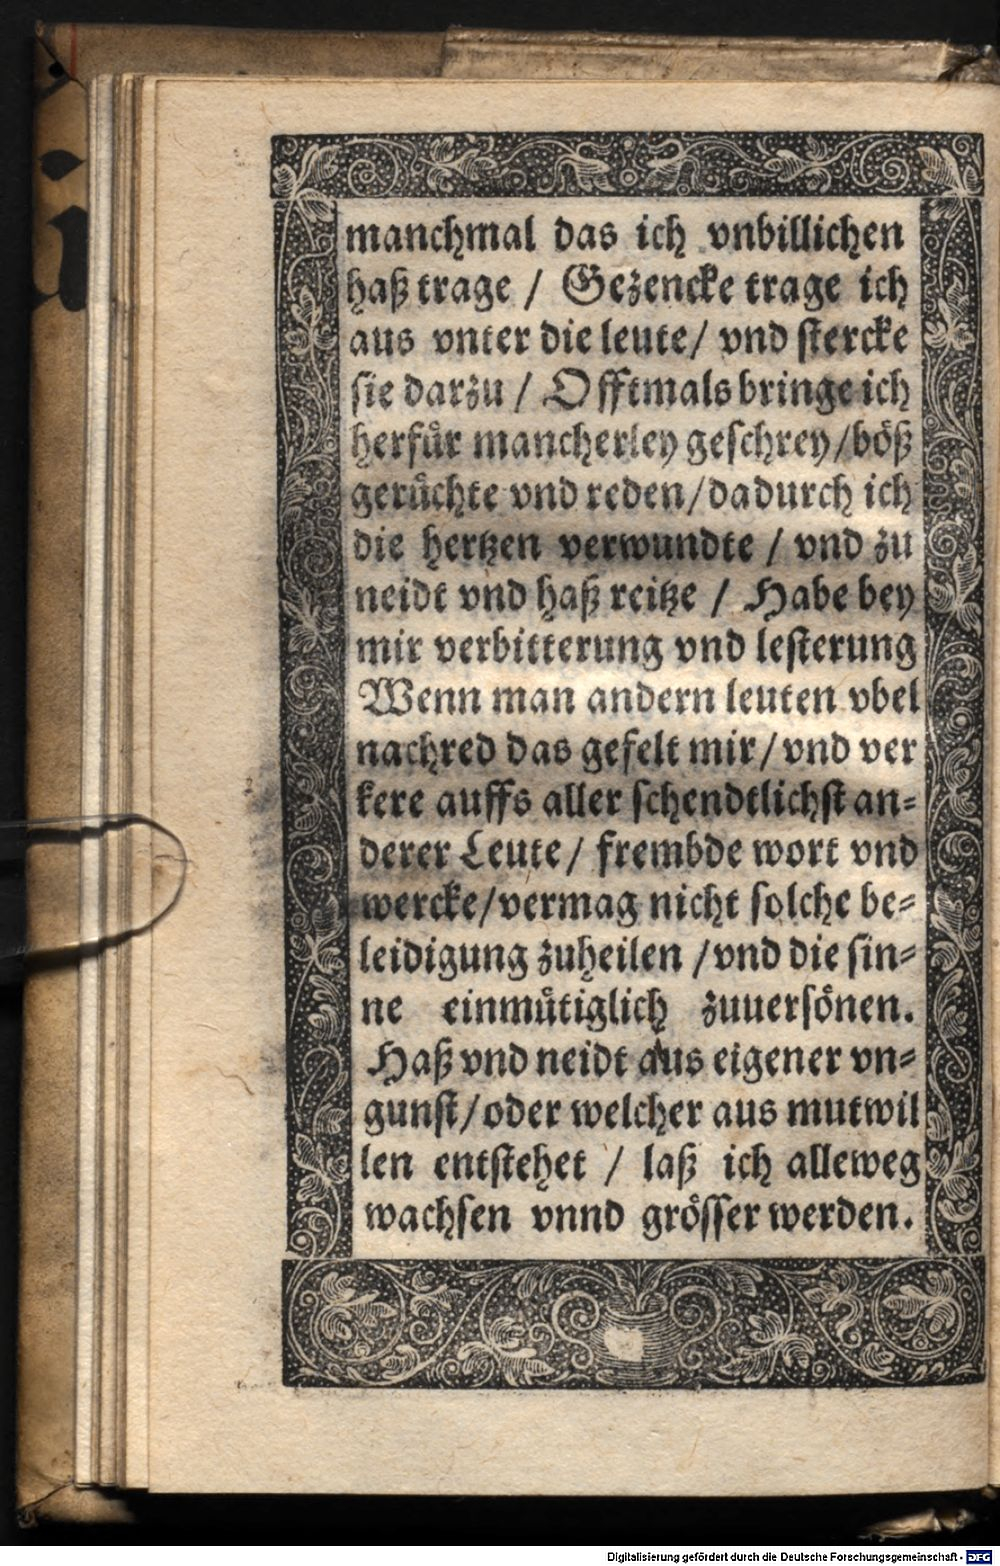 manchmal das ich vnbillichen
haß trage / Gezencke trage ich
aus vnter die leute / vnd stercke
sie darzu / Offtmals bringe ich
herfuͤr mancherley geschrey / boͤß
geruͤchte vnd reden / dadurch ich
die hertzen verwundte / vnd zu
neidt vnd haß reitze / Habe bey
mir verbitterung vnd lesterung
Wenn man andern leuten vbel
nachred das gefelt mir / vnd ver
kere auffs aller schendtlichst an⸗
derer Leute / frembde wort vnd
wercke / vermag nicht solche be⸗
leidigung zuheilen / vnd die sin⸗
ne einmuͤtiglich zuuersoͤnen.
Haß vnd neidt aus eigener vn⸗
gunst / oder welcher aus mutwil
len entstehet / laß ich alleweg
wachsen vnnd groͤsser werden.
Digitalisierung gefördert durch die Deutsche Forschungsgemeinschaft - DFG